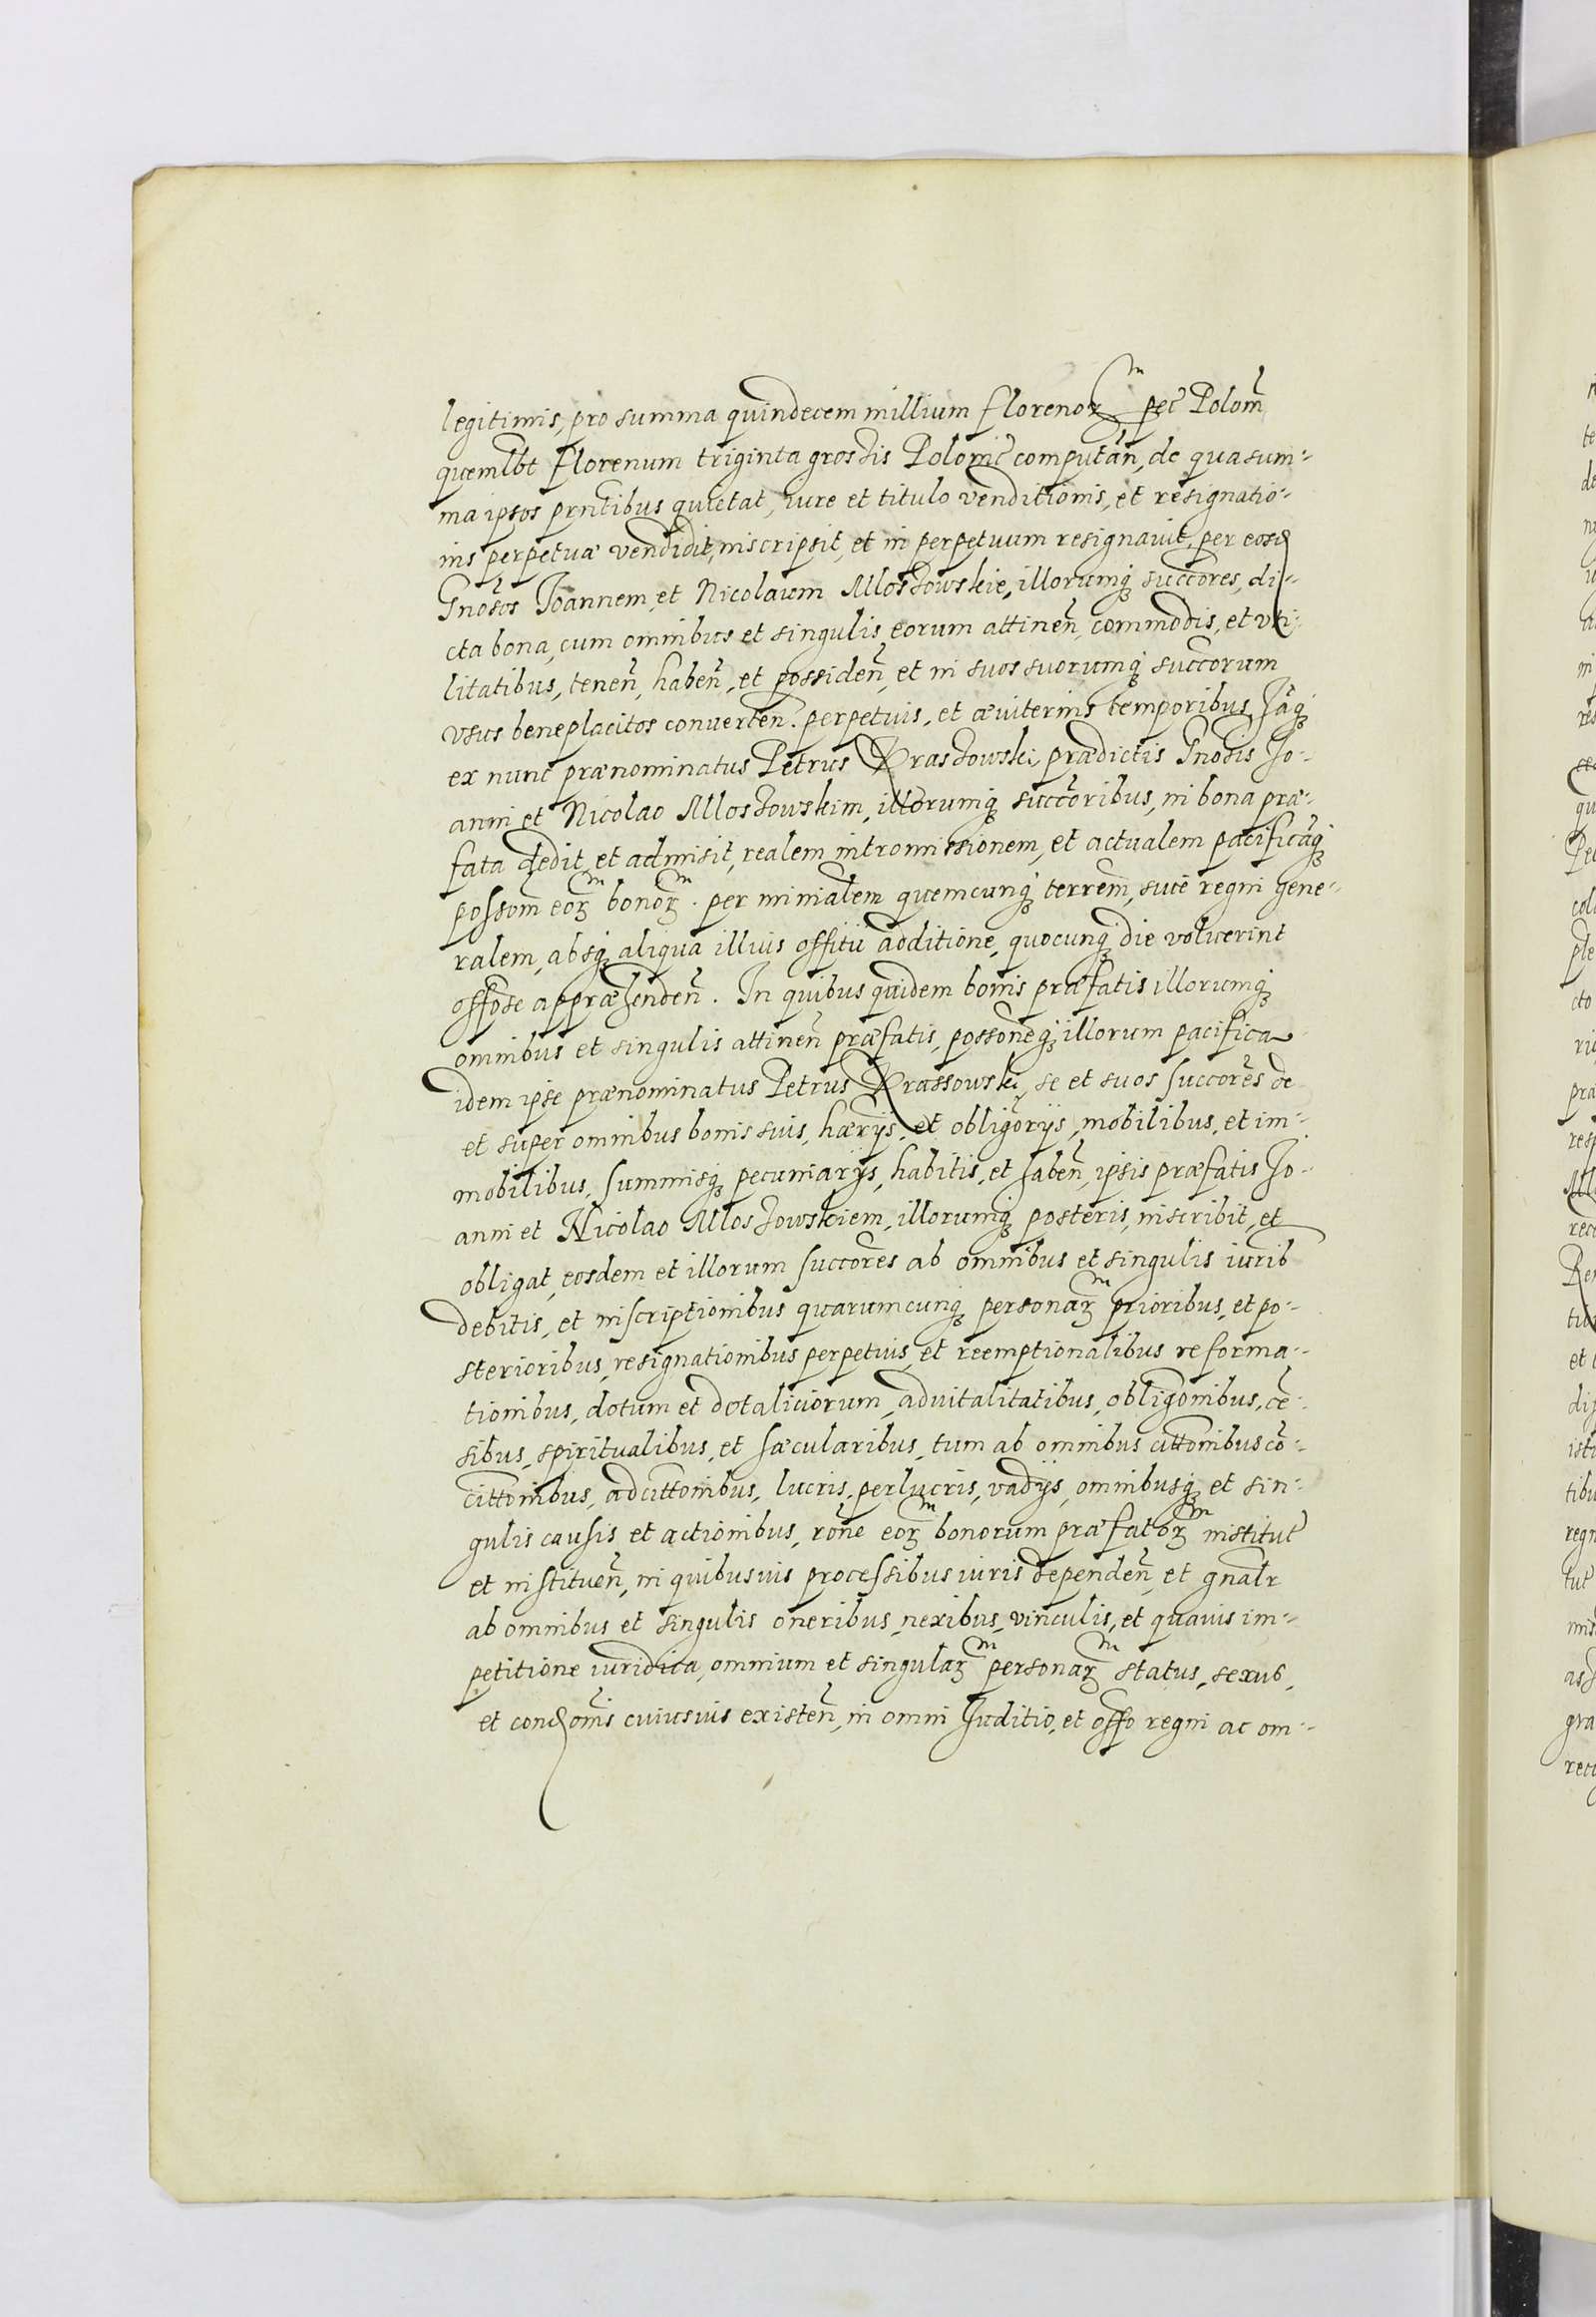 legitimis, pro summa quindecem millium florenoꝝm pec̃ Polom̃
quemlbt Florenum triginta grossis Polonic̃ computañ, de qua sum-
ma ipsos pnũtibus quietat, iure et titulo venditionis, et resignatio-
nis perpetuæ vendidit, inscripsit, et in perpetuum resignauit, per eosd
Gnos̃os Joannem, et Nicolaum Mlossowskie, illorumq̃ succores, di-
cta bona, cum omnibus et singulis eorum attineñ, commodis, et vti-
litatibus, teneñ, habeñ, et possideñ, et in suos suorumq̃ succorum
vsus beneplacitos conuerteñ. perpetuis, et æuiternis temporibus Jãq̃
ex nunc prænominatus Petrus Krassowski, prædictis Gnosis Jo-
anni et Nicolao Mlossowskim, illorumq̃ succoribus, in bona præ-
fata dedit, et admisit, realem intromissionem, et actualem pacificãq̃
possom̃ eoꝝm bonoꝝm. per minialem quemcunq̃ terrem̃, suie regni gene-
ralem, absq̃ aliqua illius offitii additione, quocunq̃ die voluerint
offose appræhendeñ. In quibus quidem bonis præfatis illorumq̃
omnibus et singulis attineñ præfatis, possoneq̃ illorum pacifica
idem ipse prænominatus Petrus Krassowski, se et suos succores de
et super omnibus bonis suis, hærijs, et obligorijs, mobilibus, et im-
mobilibus, summisq̃ pecuniarijs, habitis, et habeñ, ipsis præfatis Jo-
anni et Nicolao Mlossowskiem, illorumq̃ posteris, inscribit, et
obligat, eosdem et illorum succores ab omnibus et singulis iurib
debitis, et inscriptionibus quarumcunq̃ personaꝝm prioribus, et po-
sterioribus, resignationibus perpetuis, et reemptionalibus reforma-
tionibus, dotum et dotaliciorum, aduitalitatibus, obligonibus, cẽ-
sibus, spiritualibus, et sæcularibus, tum ab omnibus cittonibus cõ-
cittonibus, adcittonibus, lucris, perlucris, vadijs, omnibusq̃ et sin-
gulis causis et actionibus, rõne eoꝝm bonorum præfatoꝝm institut̃
et instituẽn, in quibusuis processibus iuris dependeñ, et gnalr
ab omnibus et singulis oneribus, nexibus, vinculis, et quauis im-
petitione iuridica, omnium et singulaꝝm personaꝝm status, sexus,
et cond̃onis cuiusuis existeñ, in omni Juditio, et offo regni ac om-